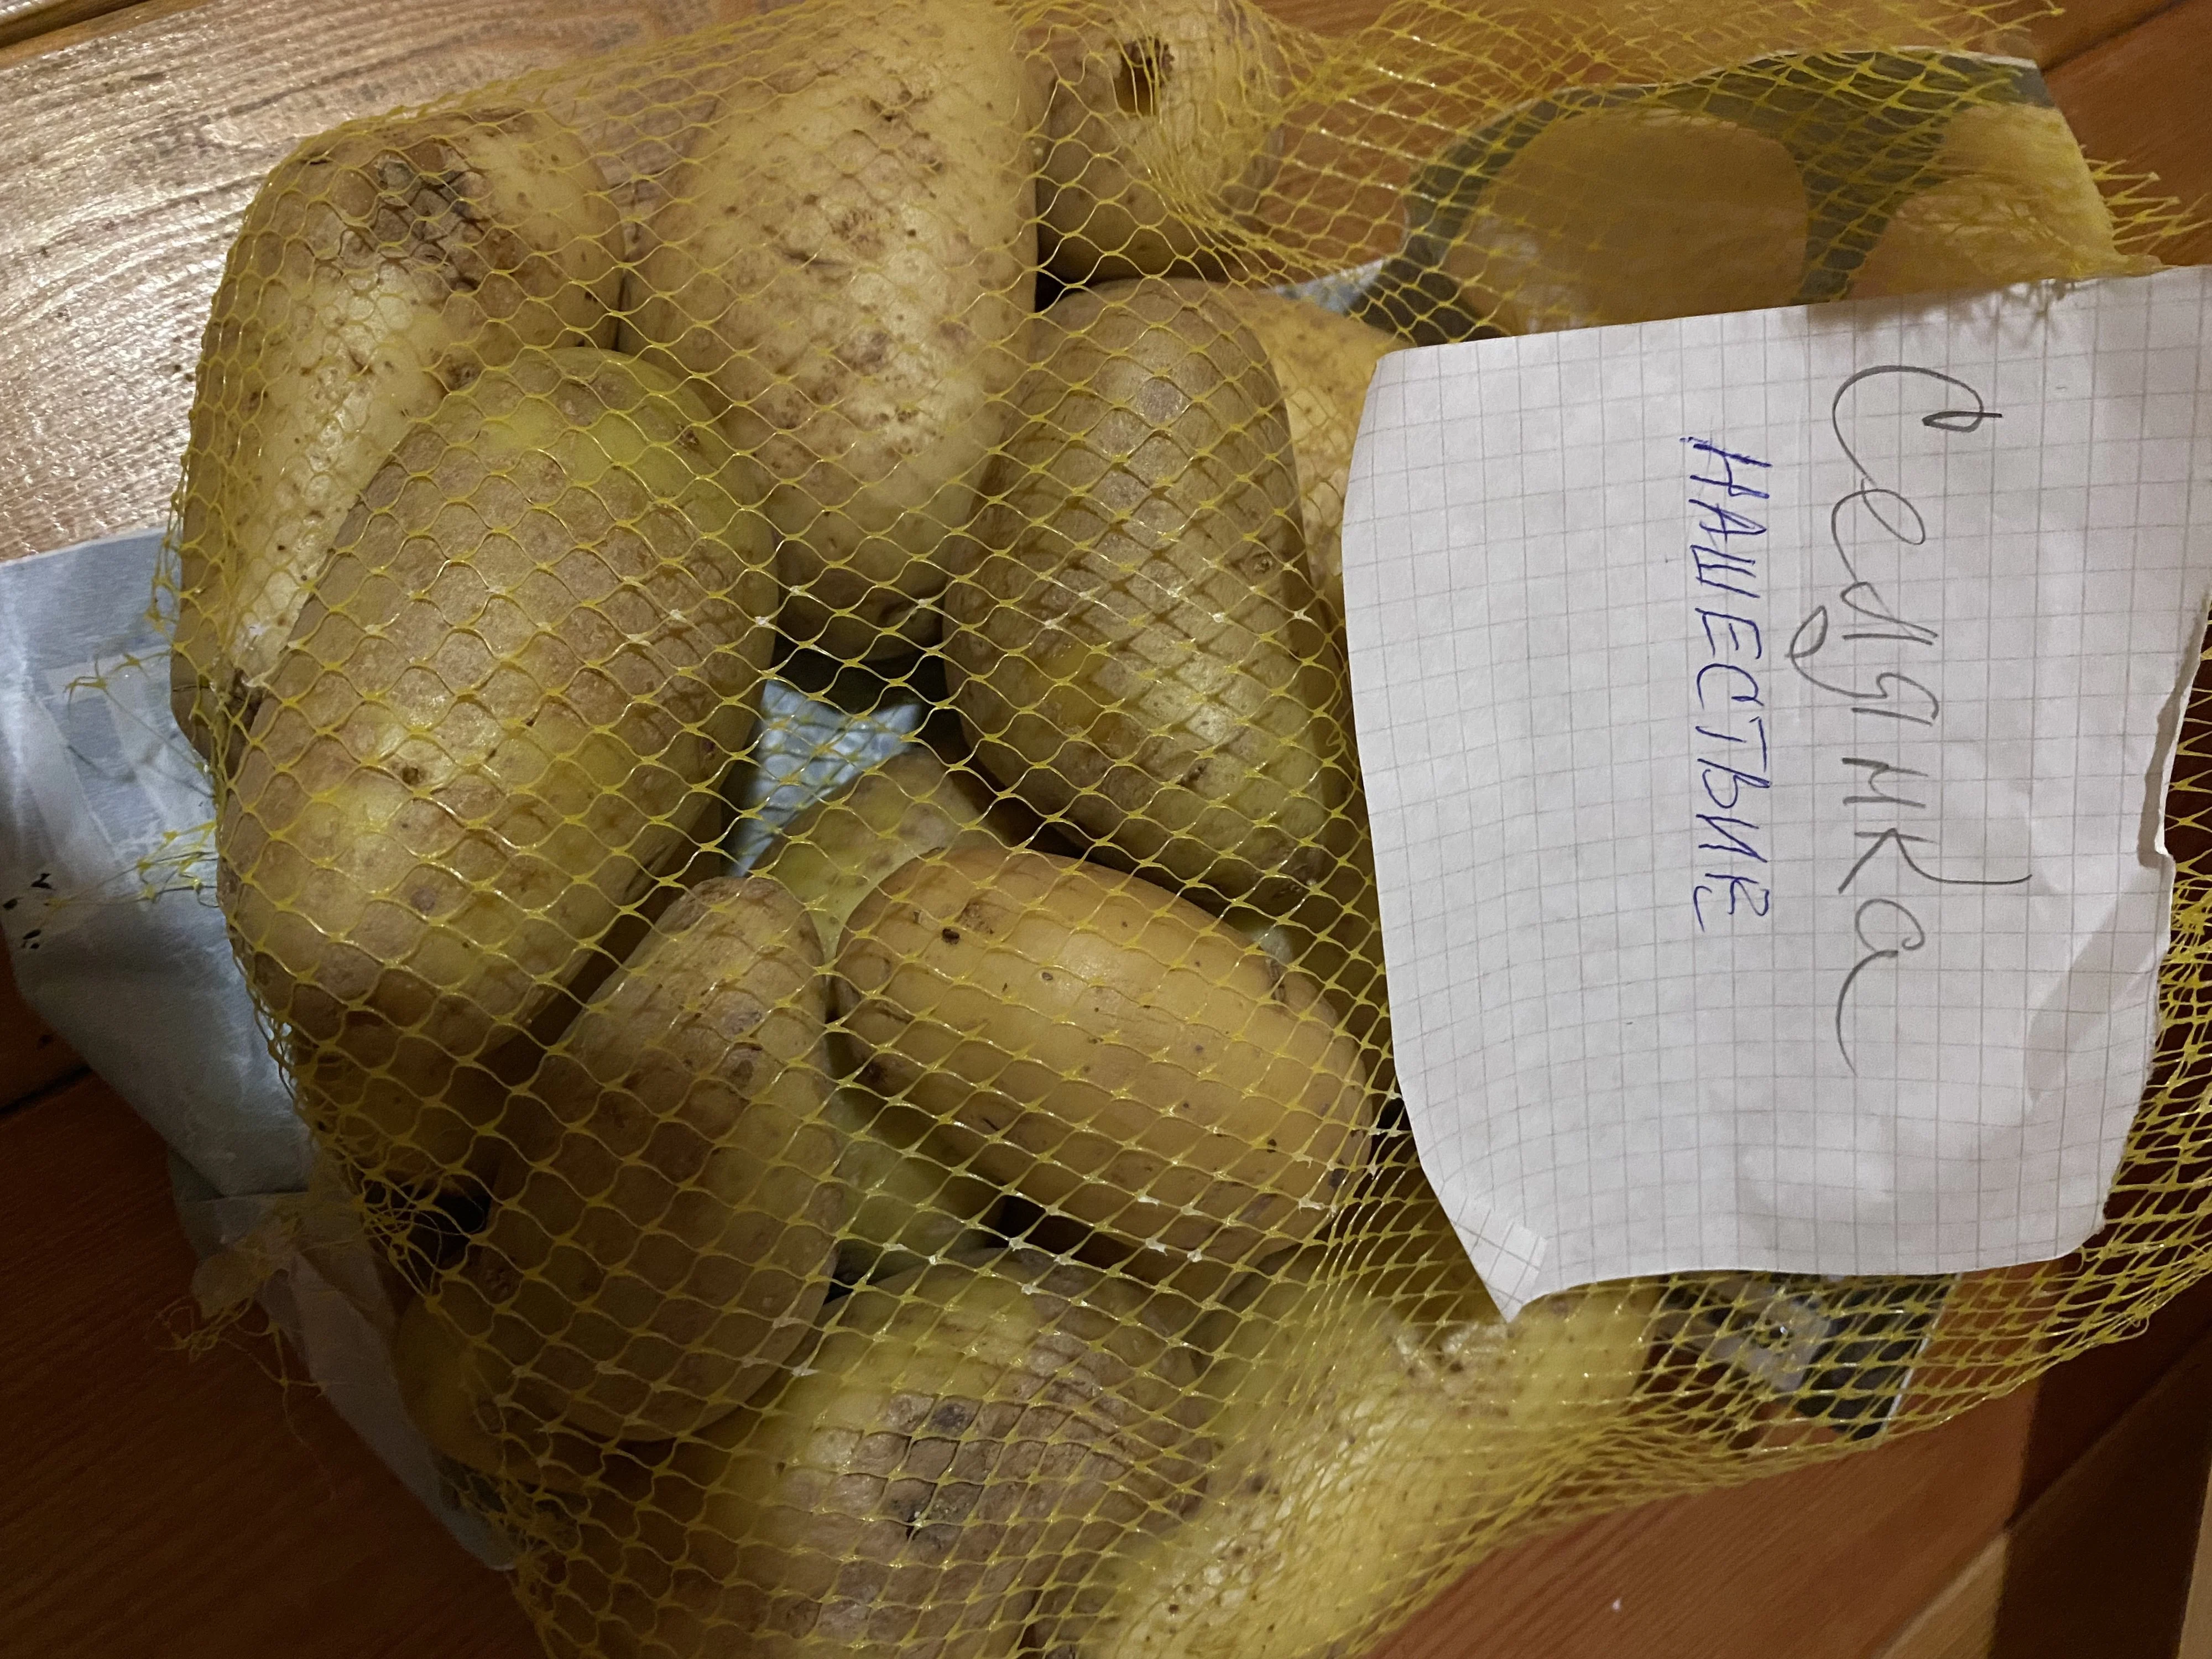 Селянка
НАШЕСТВИЕ